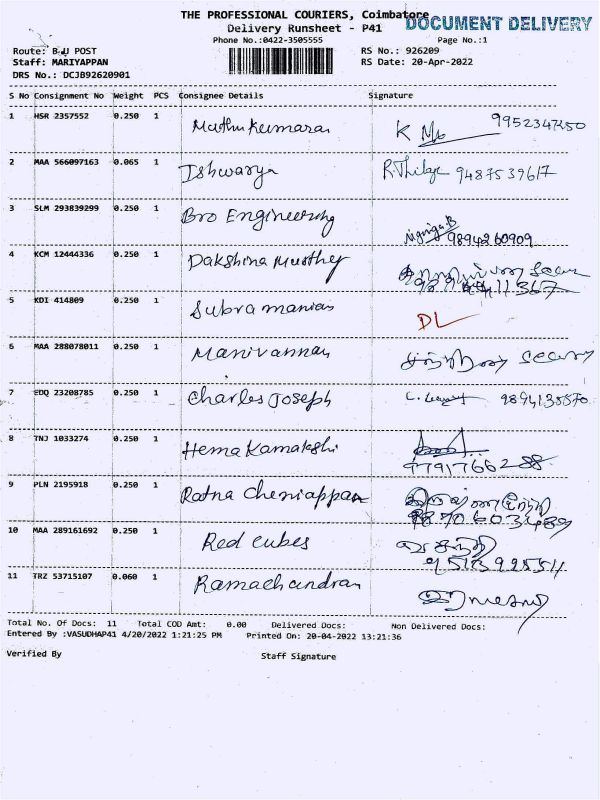 THE PROFESSIONAL COURIERS, Coimbatore
DOCUMENT DELIVERY
Delivery Runsheet - P41
Phone No.:0422-3505555
Page No.:1
Route: B.U POST
RS No.: 926209
Staff: MARIYAPPAN
RS Date: 20-Apr-2022
DRS No.: DCJB92620901
S No Consignment No Weight PCS Consignee Details Signature
1 HSR 2357552 0.250 1 Muthu Kumaran K 9952347250
2 MAA 566097163 0.065 1 Ishwarya 9487539617
3 SLM 293839299 0.250 1 Bro Engineering 9894260909
4 KCM 12444336 0.250 1 Dakshina Murthy
5 KDI 414809 0.250 1 Subramanian DL
6 MAA 288078011 0.250 1 Manivannan
7 EDQ 23208785 0.250 1 Charles Joseph 9894135570
8 TNJ 1033274 0.250 1 Hema Kamakshi 9791766288
9 PLN 2195918 0.250 1 Ratna Cheniappan
10 MAA 289161692 0.250 1 Red cubes
11 TRZ 53715107 0.060 1 Ramachandran
Total No. Of Docs: 11 Total COD Amt: 0.00 Delivered Docs: Non Delivered Docs:
Entered By :VASUDHAP41 4/20/2022 1:21:25 PM Printed On: 20-04-2022 13:21:36
Verified By Staff Signature